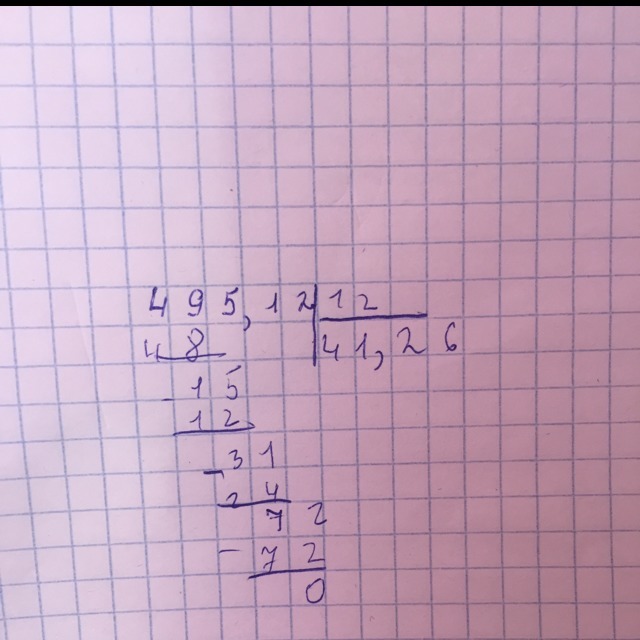 495,12 12
48 41,26
- 15
12
- 31
24
72
- 72
0